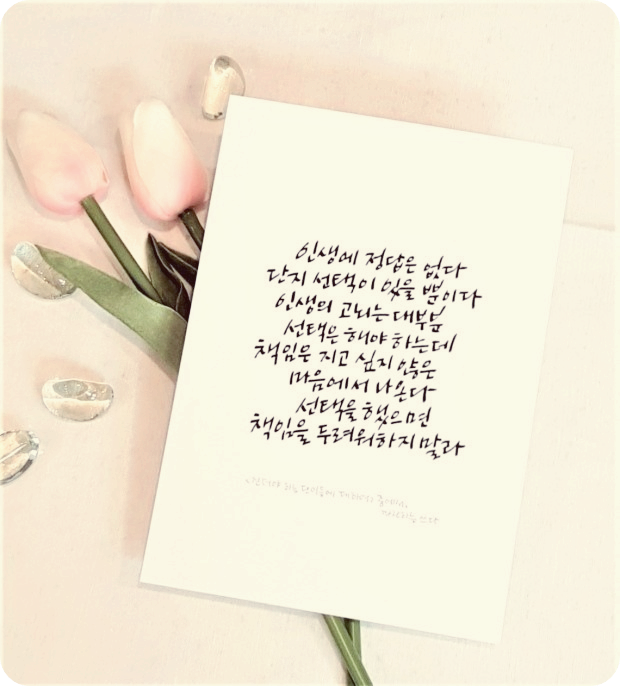 인생에 정답은 없다
단지 선택이 있을 뿐이다
인생의 고뇌는 대부분
선택은 해야 하는데
책임은 지고 싶지 않은
마음에서 나온다
선택을 했으면
책임을 두려워하지 말라